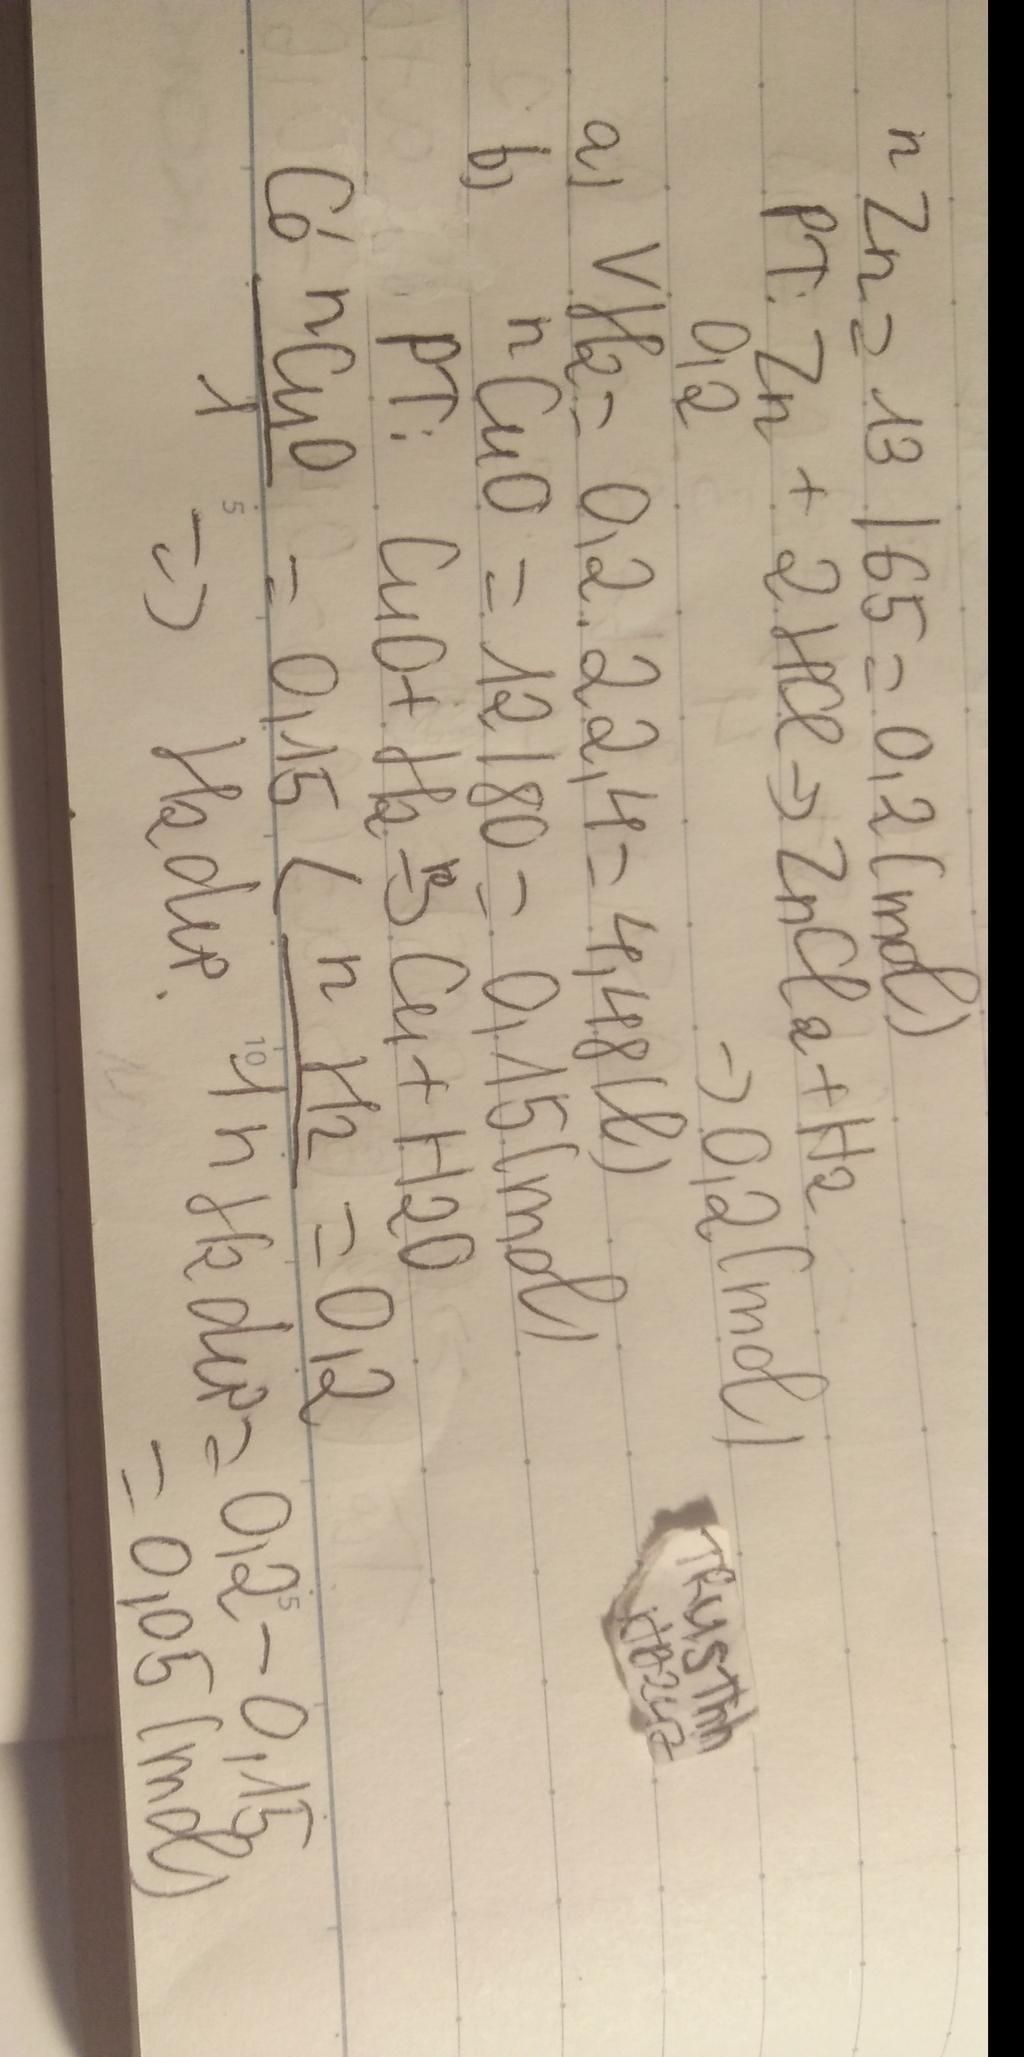 n Zn = 13 / 65 = 0,2 (mol)
PT: Zn + 2HCl → ZnCl2 + H2
0,2 → 0,2 (mol)
a, VH2 = 0,2. 22,4 = 4,48 (l)
b, n CuO = 12 / 80 = 0,15 (mol)
PT: CuO + H2 → Cu + H2O
Có nCuO = 0,15 < n H2 = 0,2
1 1
=> H2 dư. n H2 dư = 0,2 - 0,15
= 0,05 (mol)
TRUSTmh
5
10
5